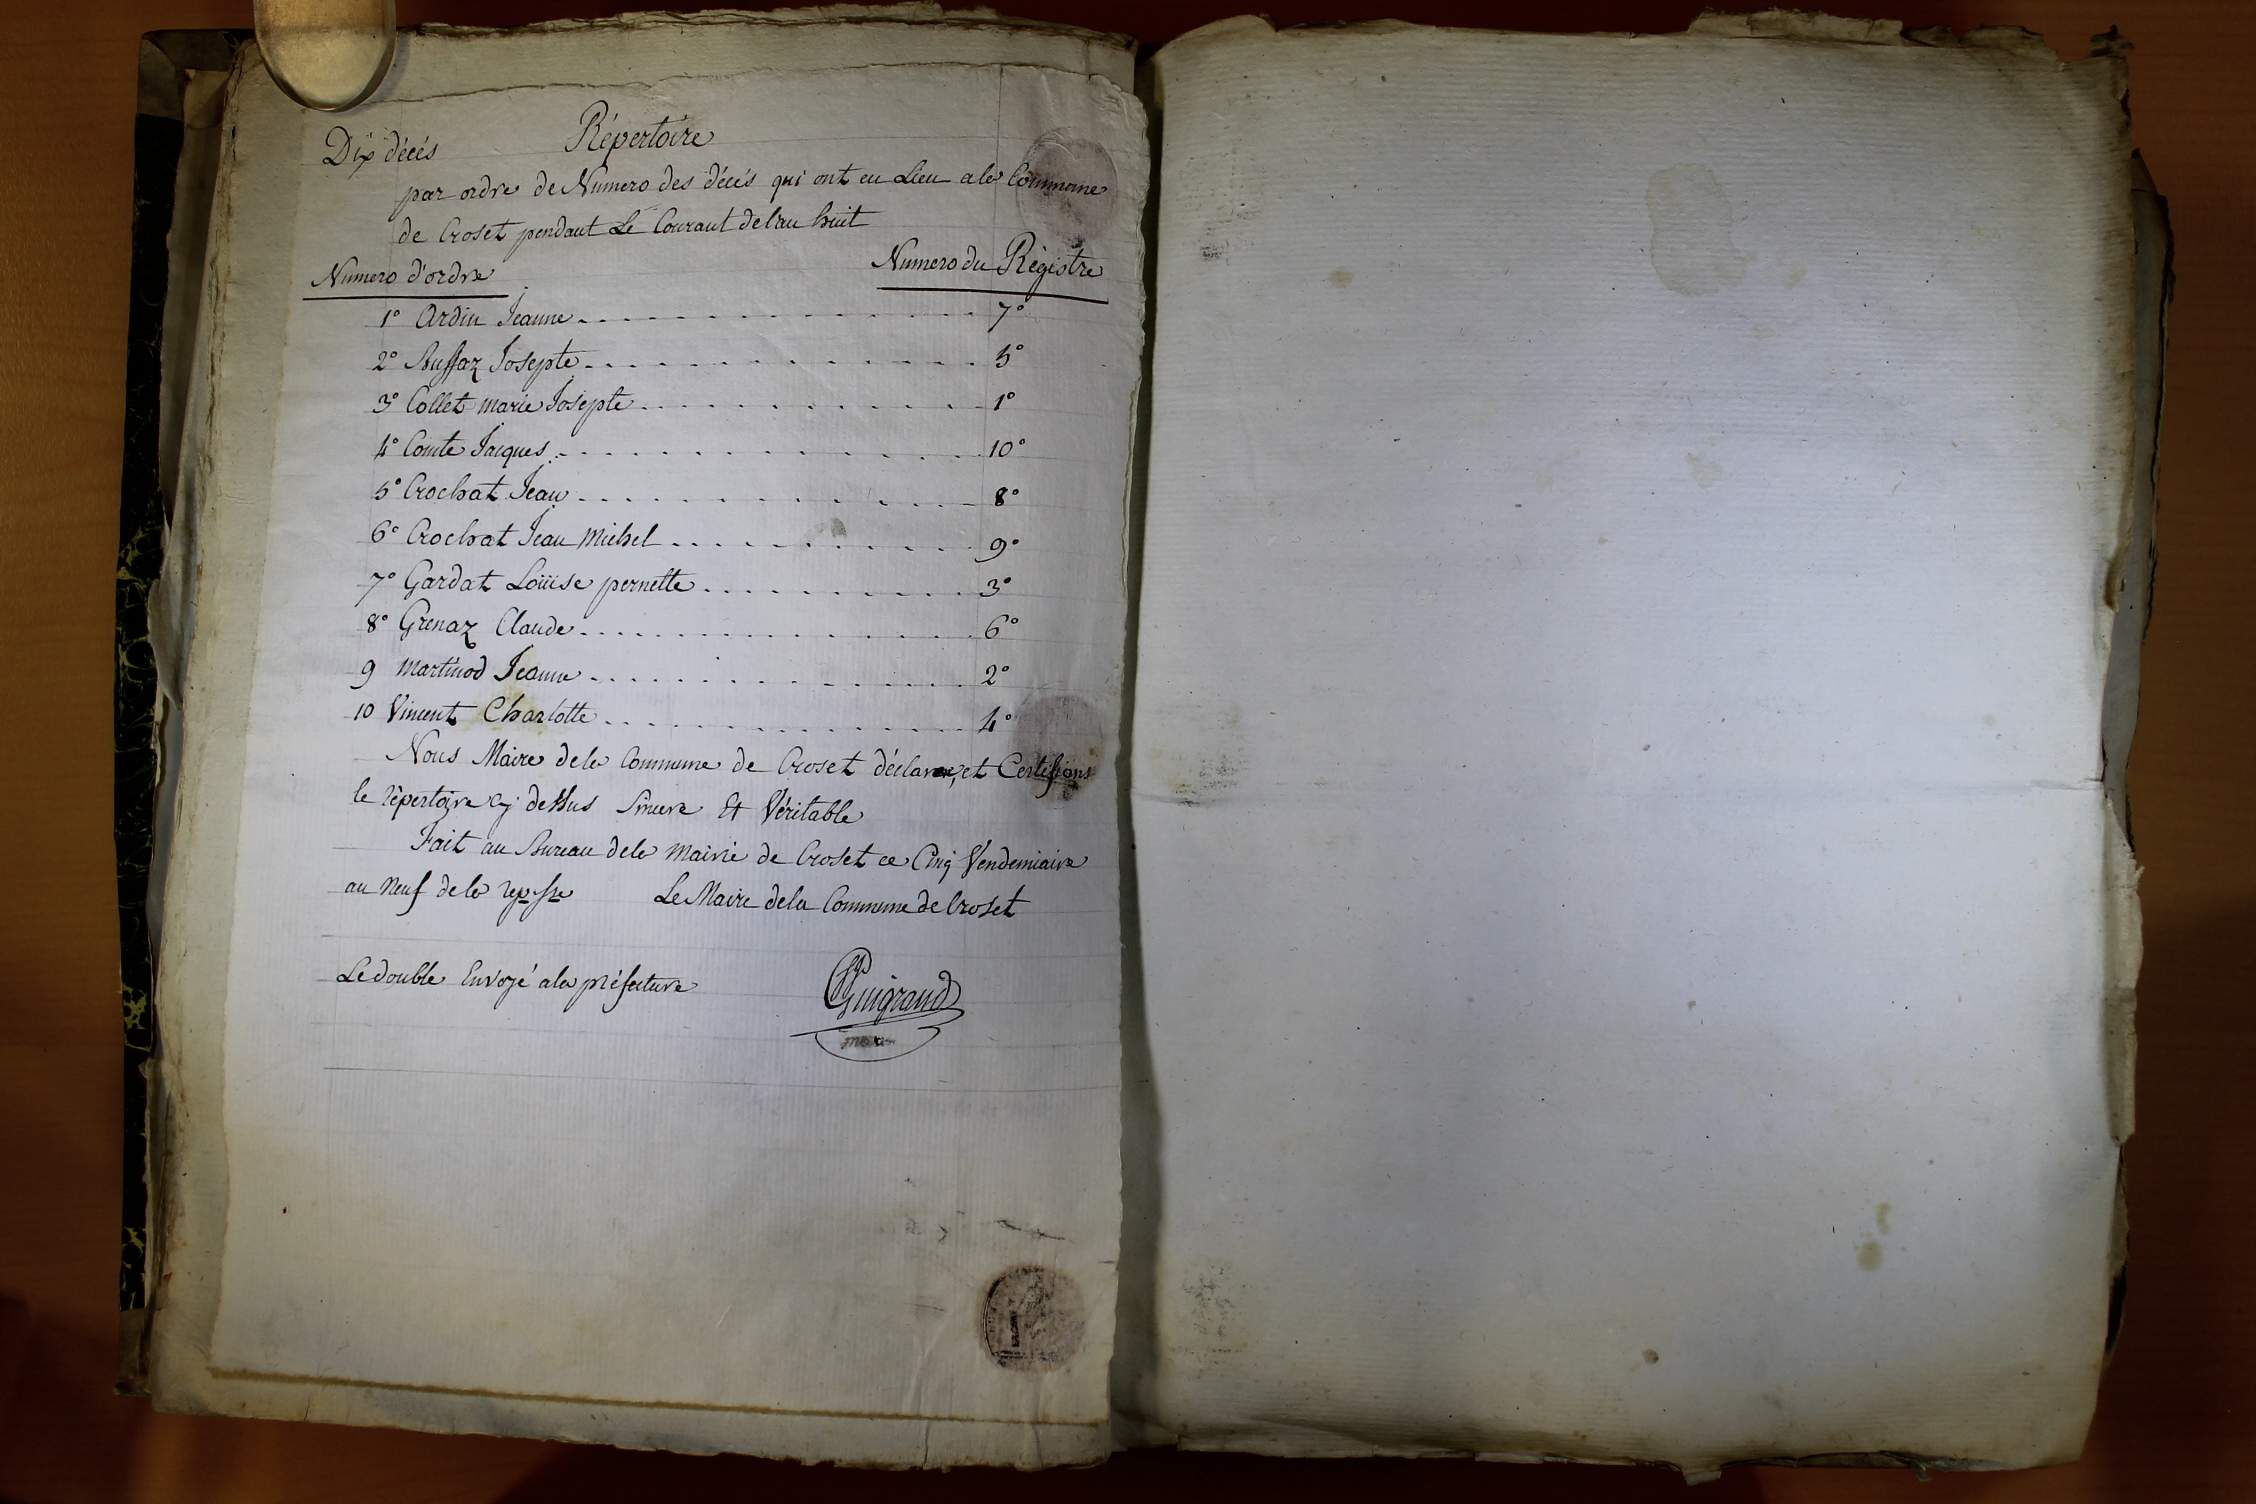 Dix décés Répertoire
par ordre de Numero des décés qui ont eu Lieu a la Commune
de Croset pendant Le Courant de l'an huit
Numero d'ordre Numero du Régistre
1° Ardin Jeanne 7°
2° Buffaz Josepte 5°
3° Collet marie Josepte 1°
4° Comte Jacques 10°
5° Crochat Jean 8°
6° Crochat Jean Michel 9°
7° Gardat Loüise pernette 3°
8° Grenaz Claude 6°
9 Martinod Jeanne 2°
10 Vincent Charlotte 4°
Nous Maire de la Commune de Croset déclare, et Certifions
le répertoire cy dessus Sincere Et Véritable
Fait au Bureau de la Mairie de Croset ce Cinq Vendemiaire
an Neuf de la rep. fse Le Maire de la Commune de Croset
Le double Envoyé a la préfecture
Guigrand